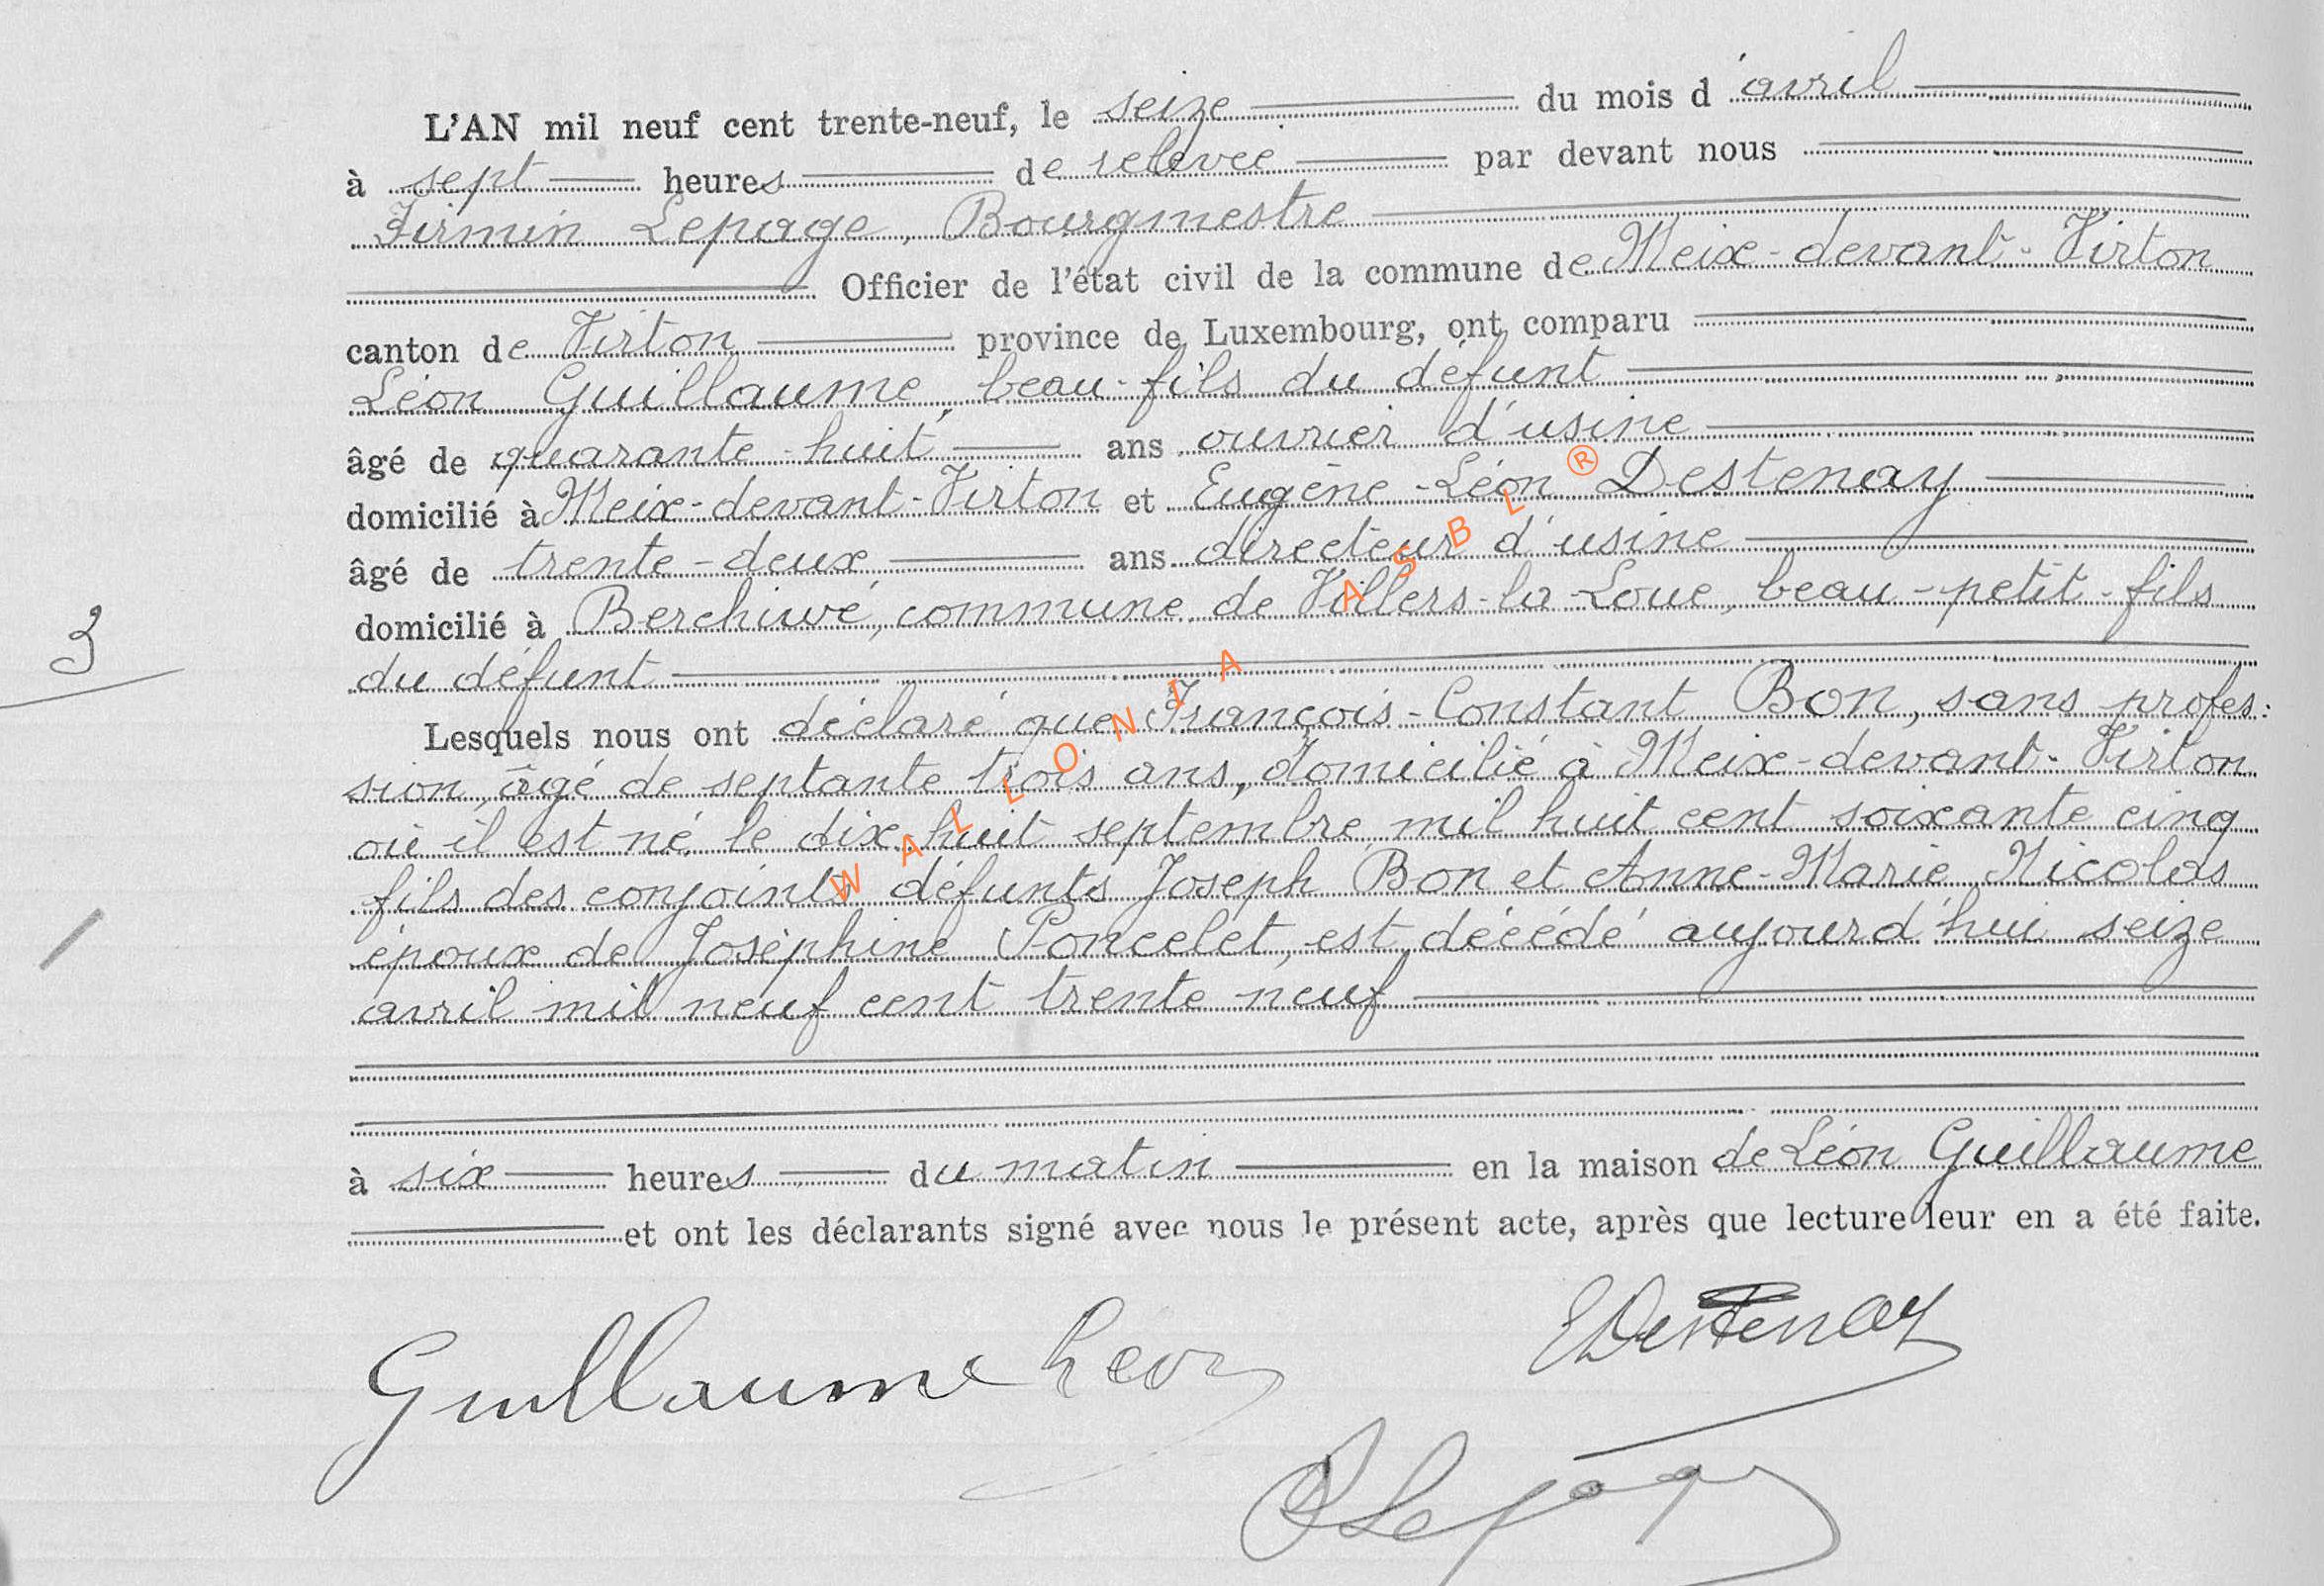 L'AN mil neuf cent trente-neuf, le seize du mois d'avril
à sept heures de relevée par devant nous
Firmin Lepage, Bourgmestre
Officier de l'état civil de la commune de Meix-devant-Virton
canton de Virton province de Luxembourg, ont comparu
Léon Guillaume, beau-fils du défunt
âgé de quarante-huit ans ouvrier d'usine
domicilié à Meix-devant-Virton et Eugène-Léon Destenay
âgé de trente-deux ans directeur d'usine
domicilié à Berchiwé, commune de Villers-la-Loue, beau-petit-fils
3
du défunt
Lesquels nous ont déclaré que François-Constant Bon, sans profes:
sion, âgé de septante trois ans, domicilié à Meix-devant-Virton
où il est né le dix-huit septembre mil huit cent soixante cinq
fils des conjoints défunts Joseph Bon et Anne-Marie Nicolas
époux de Joséphine Poncelet, est décédé aujourd'hui seize
avril mil neuf cent trente neuf
à six heures du matin en la maison de Léon Guillaume
et ont les déclarants signé avec nous le présent acte, après que lecture leur en a été faite.
Guillaume Léon
EDestenay
FLepage
WALLONIA ASBL®